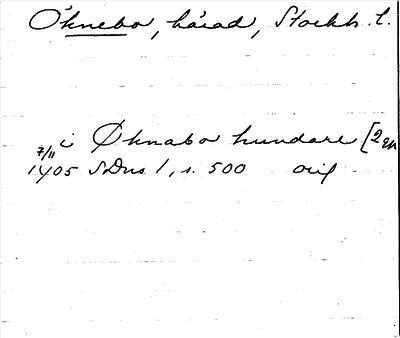 Öknebo, härad, Stockh. l.
i Øknabo hundare [2 gn
7/11
1405 SDns 1, s. 500 orig